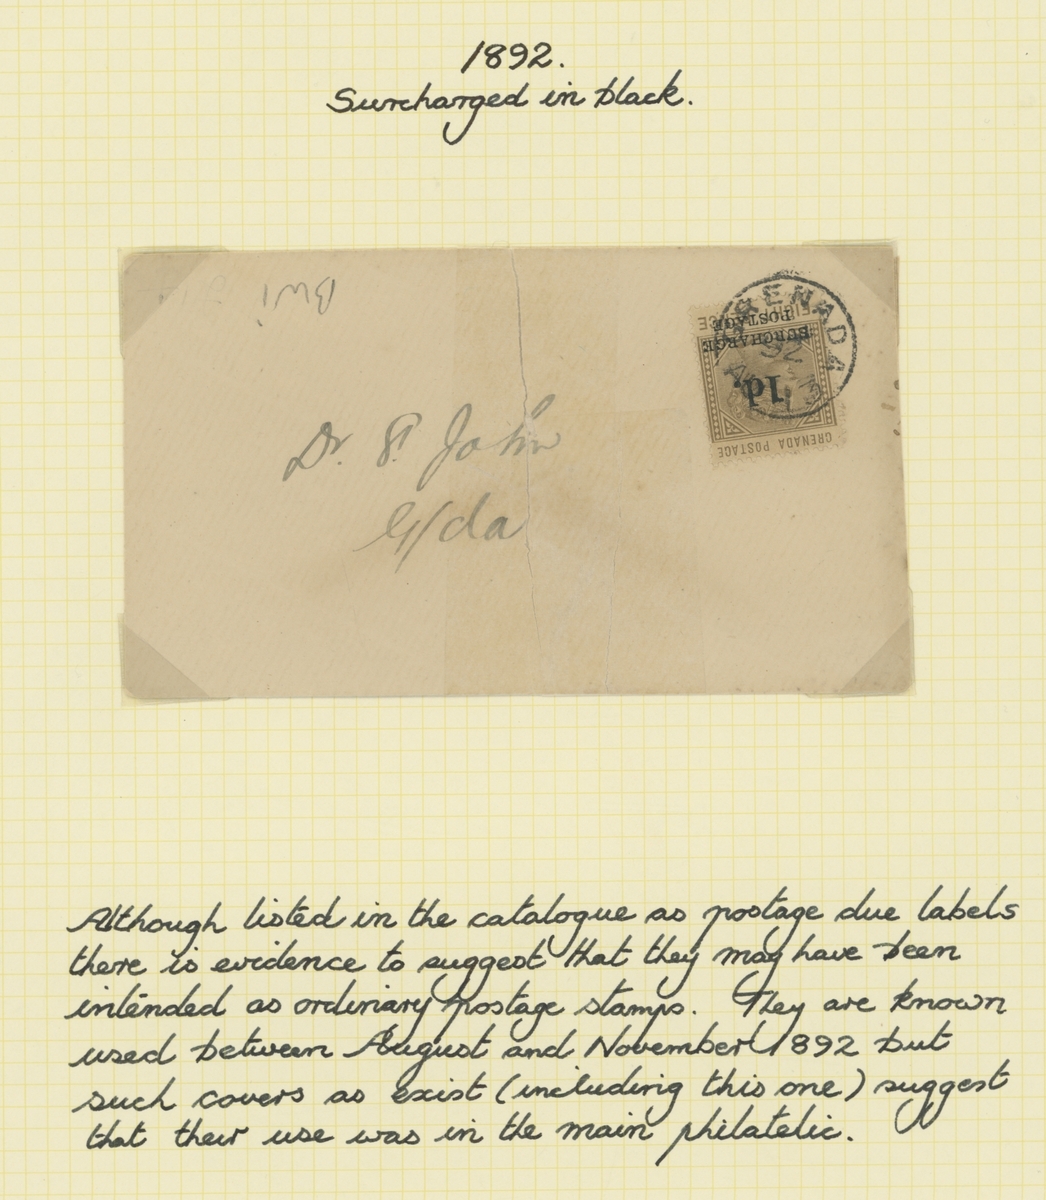 1892.
Surcharged in black.
BWI
GRENADA
92
EIGHT PENCE
SURCHARGE
POSTAGE
1d.
GRENADA POSTAGE
Dr. St. John
G/da
Although listed in the catalogue as postage due labels
there is evidence to suggest that they may have been
intended as ordinary postage stamps. They are known
used between August and November 1892 but
such covers as exist (including this one) suggest
that their use was in the main philatelic.